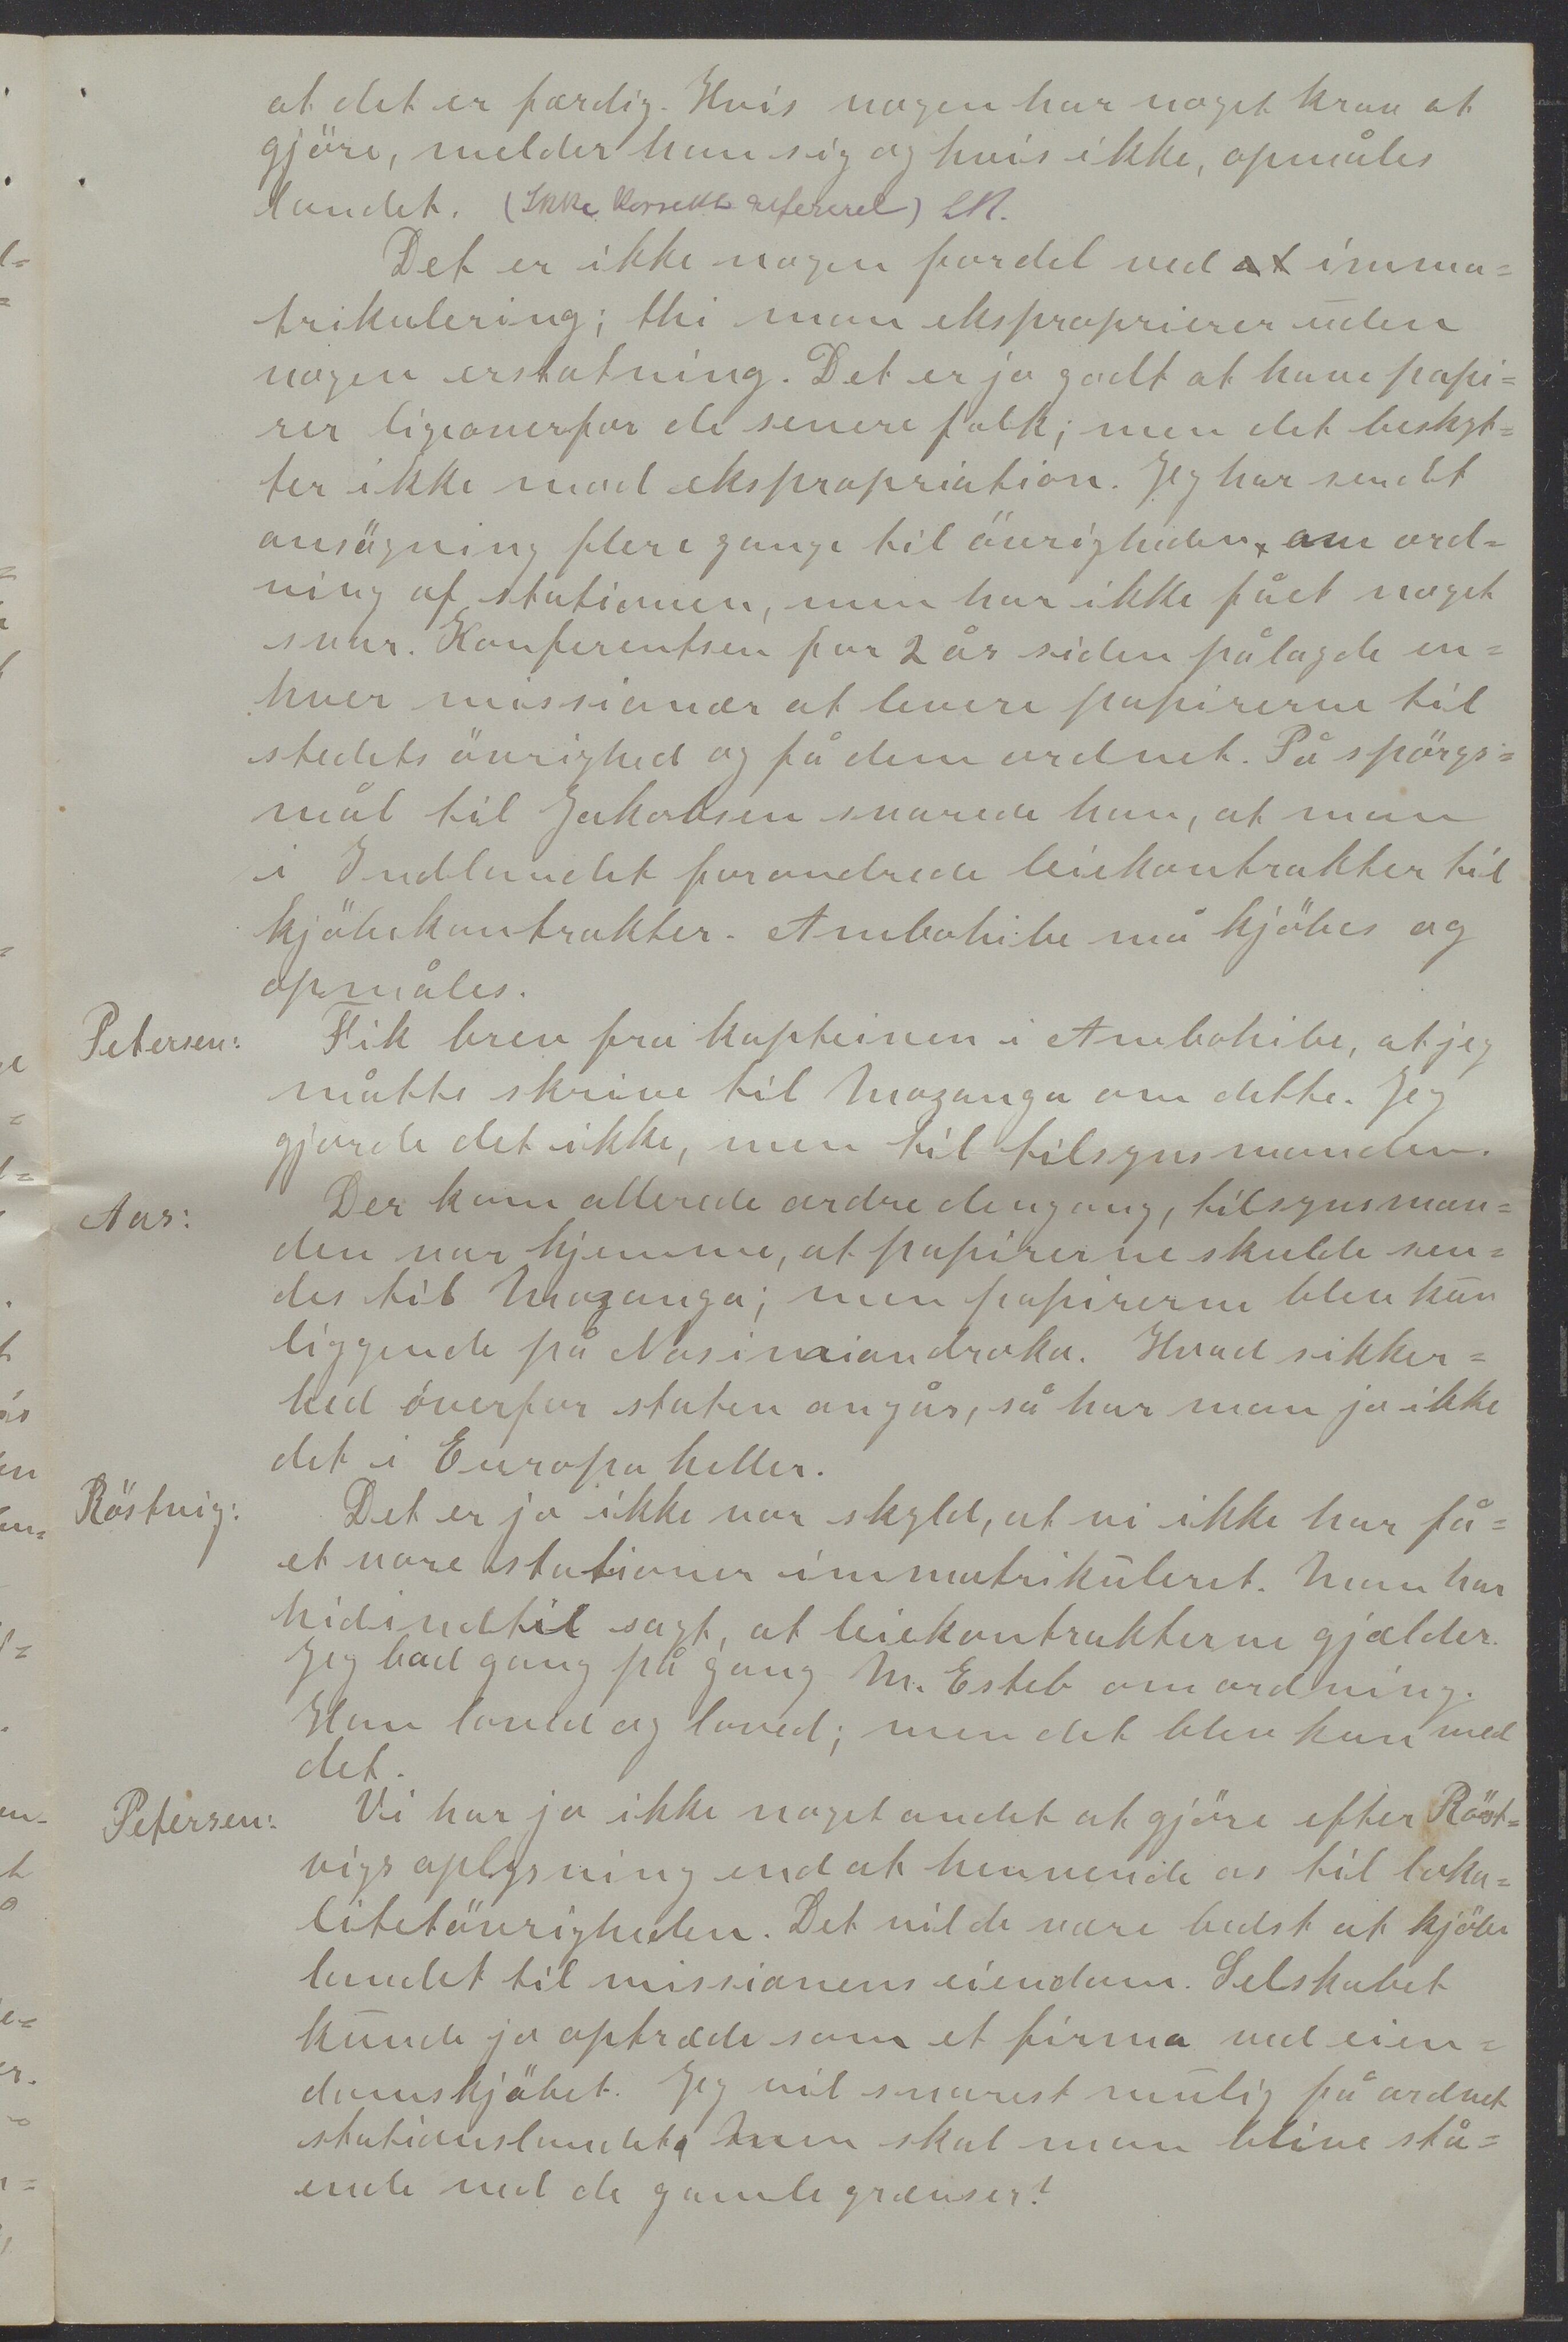 at det er færdig. Hvis nogen har noget krav at
gjöre, melder han sig og hvis ikke, opmåles
landet. (Ikke korrekt refereret) LR.
Det er ikke nogen fordel ved at imma=
trikulering; thi man eksproprierer uden
nogen erstatning. Det er jo godt at have papi=
rer ligeoverfor de senere folk; men det beskyt=
ter ikke mod ekspropriation. Jeg har sendt
ansögning flere gange til övrigheden, om ord=
ning af stationen, men har ikke fået noget
svar. Konferentsen for 2 år siden pålagde en=
hver missionær at levere papirerne til
stedets övrighed og få dem ordnet. På spörgs=
mål til Jakobsen svarede han, at man
i Indlandet forandrede leiekontrakter til
kjöbekontrakter. Ambohibe må kjöbes og
opmåles.
Petersen: Fik brev fra kapteinen i Ambohibe, at jeg
måtte skrive til Mozanga om dette. Jeg
gjorde det ikke, men til tilsynsmanden.
Aas: Der kom allerede ordre dengang, tilsynsman=
den var hjemme, at papirerne skulde sen=
des til Mozanga; men papirerne blev kun
liggende på Nosimiandroka. Hvad sikker=
hed överfor staten angår, så har man jo ikke
det i Europa heller.
Röstvig: Det er jo ikke vor skyld, at vi ikke har få=
et vore stationer immatrikuleret. Man har
hidindtil sagt, at leiekontrakterne gjælder.
Jeg bad gang på gang M. Esteb om ordning.
Han loved og loved; men det blev kun med
det.
Petersen: Vi har jo ikke noget andet at gjöre efter Röst=
vigs oplysning end at henvende os til loka=
litetövrigheden. Det vilde være bedst at kjöbe
landet til missionens eiendom. Selskabet
kunde jo optræde som et firma ved eien=
domskjöbet. Jeg vil snarest mulig få ordnet
stationslandet, men skal man blive stå=
ende ved de gamle grænser?